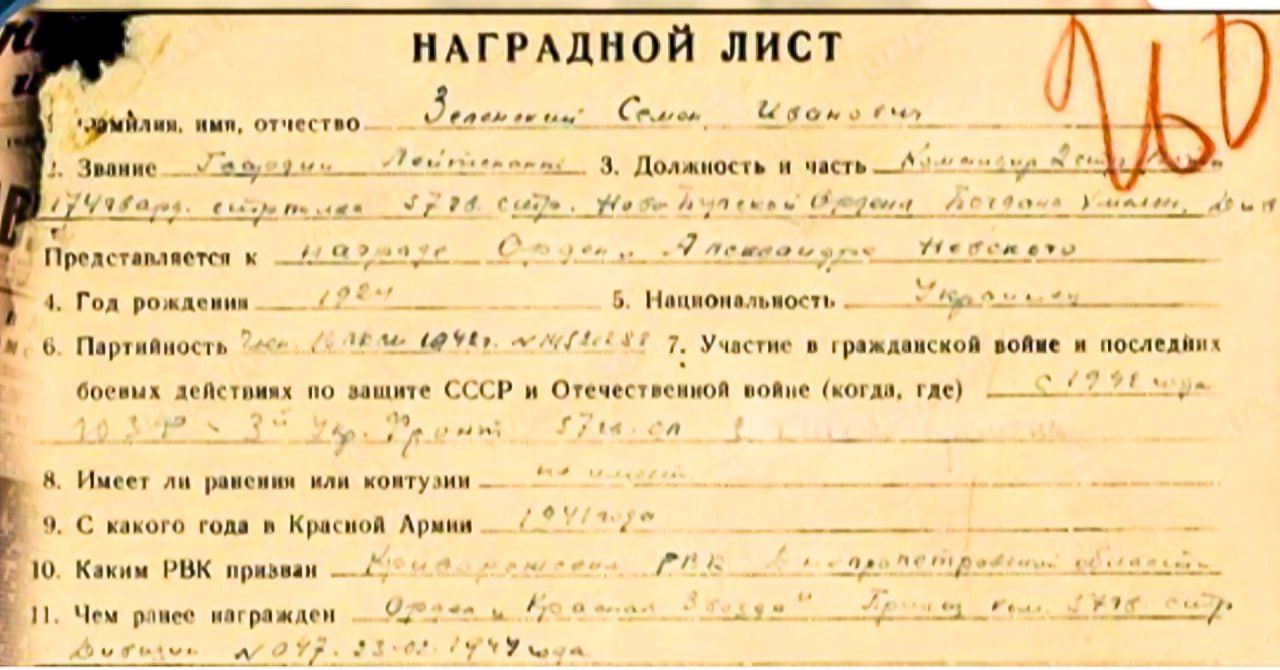 НАГРАДНОЙ ЛИСТ
260
амилия, имя, отчество Зеленский Семен Иванович
2. Звание Гвардии Лейтенант 3. Должность и часть Командир
174 гвард. стр. полка 57 гв. стр. Ново Бугской Ордена Богдана
Представляется к награде Орден Александра Невского
4. Год рождения 1924 5. Национальность Украинец
6. Партийность 1942г. № 7. Участие в гражданской войне и последних
боевых действиях по защите СССР и Отечественной войне (когда, где) с 1942 года
ЮЗФ - 3й Укр. Фронт 57 гв. сд
8. Имеет ли ранения или контузии не имеет
9. С какого года в Красной Армии 1941 года
10. Каким РВК призван Криворожским РВК Днепропетровской области
11. Чем ранее награжден Орден "Красная Звезда" 57 гв. стр.
Дивизии № 047. 23.02.1944 года